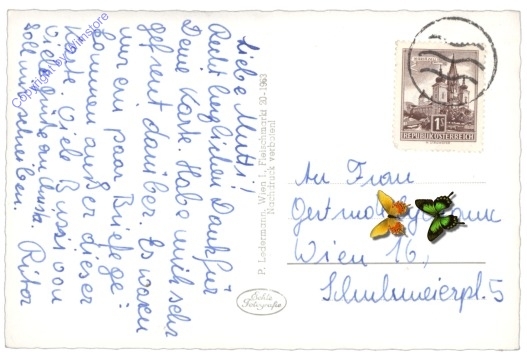 Liebe Mutti!
Recht herzlichen Dank für
Deine Karte. Habe mich sehr
gefreut darüber. Es waren
nur ein paar Briefe ge-
kommen außer dieser
Karte. Viele Bussi von
Ritor
soll mir schreiben.
P. Ledermann, Wien I, Fleischmarkt 20 - 1963
Nachdruck verboten!
Echte
Fotografie
1S
REPUBLIK ÖSTERREICH
An Frau
Wien 16,
Schuhmeierpl. 5